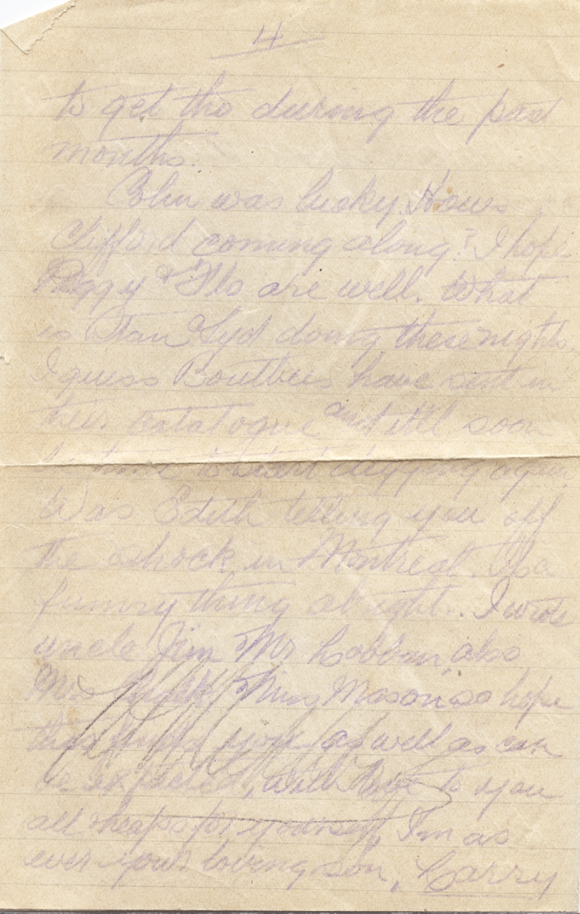 4
to get tho during the past
months.
Colin was lucky. Hows
Clifford coming along? I hope
Peggy & Flo are well. What
is Stan & Syd doing these nights
I guess have sent in
their catalogue and itll soon
be time to start digging again
Was Edith telling you off
the shock in Montreal. Its a
funny thing alright. I wrote
uncle Jim Mr also
Mrs Mason so hope
this finds you as well as can
be expected, with love to you
all heaps for yourself, I'm as
ever your loving son, Harry